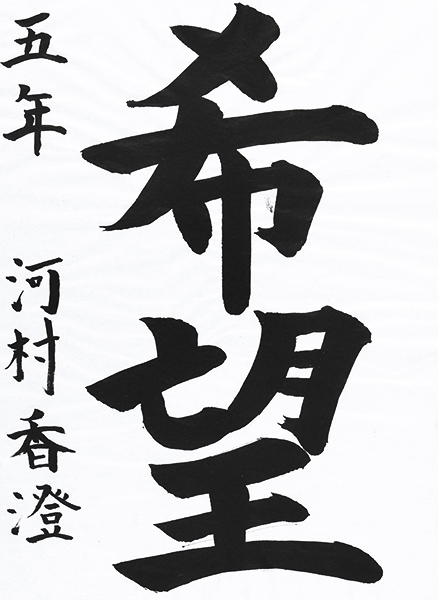 希望
五年 河村香澄